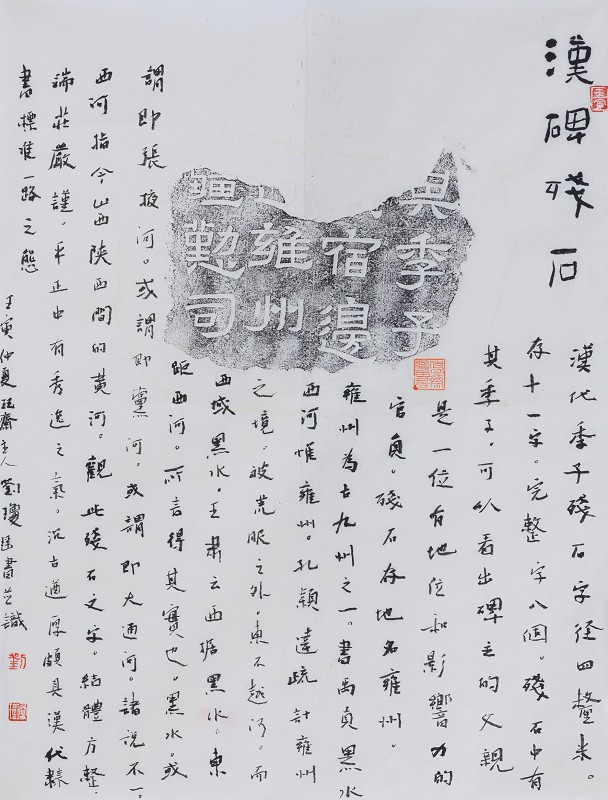 漢碑殘石
其季子
宿邊
雍州
司
漢代季子殘石字徑四釐米。
存十一字。完整字八個。殘石中有
其季子，可以看出碑主的父親
是一位有地位和影響力的
官員。殘石存地名雍州。
雍州為古九州之一。書禹貢黑水
西河惟雍州。孔穎達疏計雍州
之境。被荒服之外。東不越河。而
西域黑水。王肅云西據黑水。東
距西河。所言得其實也。黑水。或
謂即張掖河。或謂即黨河。或謂即大通河。諸說不一。
西河指今山西陝西間的黃河。觀此殘石文字。結體方整，
端莊嚴謹。平正中有秀逸之氣。沉古遒厚頗具漢代隸
書標準一路之態
壬寅仲夏齋主人劉瓊書並識
劉